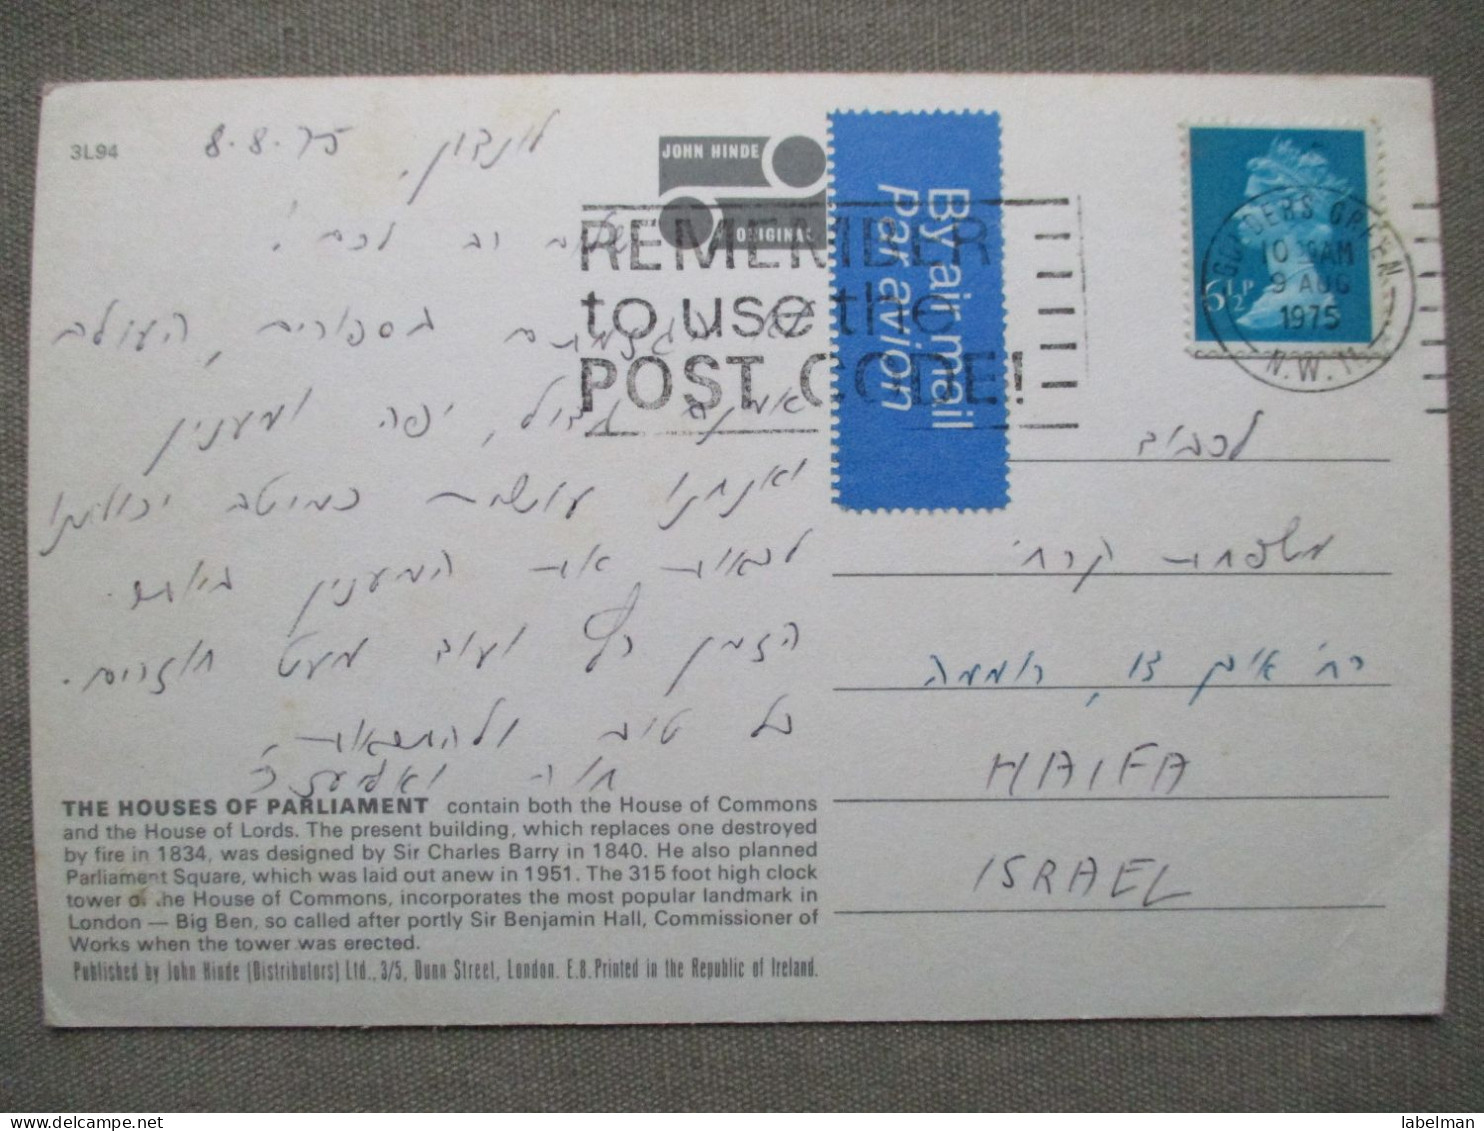 3L94
לונדון, 8.8.75
JOHN HINDE
ORIGINAL
שלום רב לכם!
בספורים, העולם
אמנם גדול, יפה ומענין
ואנחנו עושים כמיטב יכולתנו
לראות את המענין ביותר.
הזמן רץ ועוד מעט חוזרים.
כל טוב ולהתראות
חוה
THE HOUSES OF PARLIAMENT contain both the House of Commons
and the House of Lords. The present building, which replaces one destroyed
by fire in 1834, was designed by Sir Charles Barry in 1840. He also planned
Parliament Square, which was laid out anew in 1951. The 315 foot high clock
tower of the House of Commons, incorporates the most popular landmark in
London — Big Ben, so called after portly Sir Benjamin Hall, Commissioner of
Works when the tower was erected.
Published by John Hinde (Distributors) Ltd., 3/5, Dunn Street, London. E.8. Printed in the Republic of Ireland.
REMEMBER
to use the
POST CODE!
By air mail
Par avion
6½P
GOLDERS GREEN
10 AM
9 AUG
1975
N.W.11
לכבוד
משפחת קרחי
רח' אידר 23, רוממה
HAIFA
ISRAEL
labelman